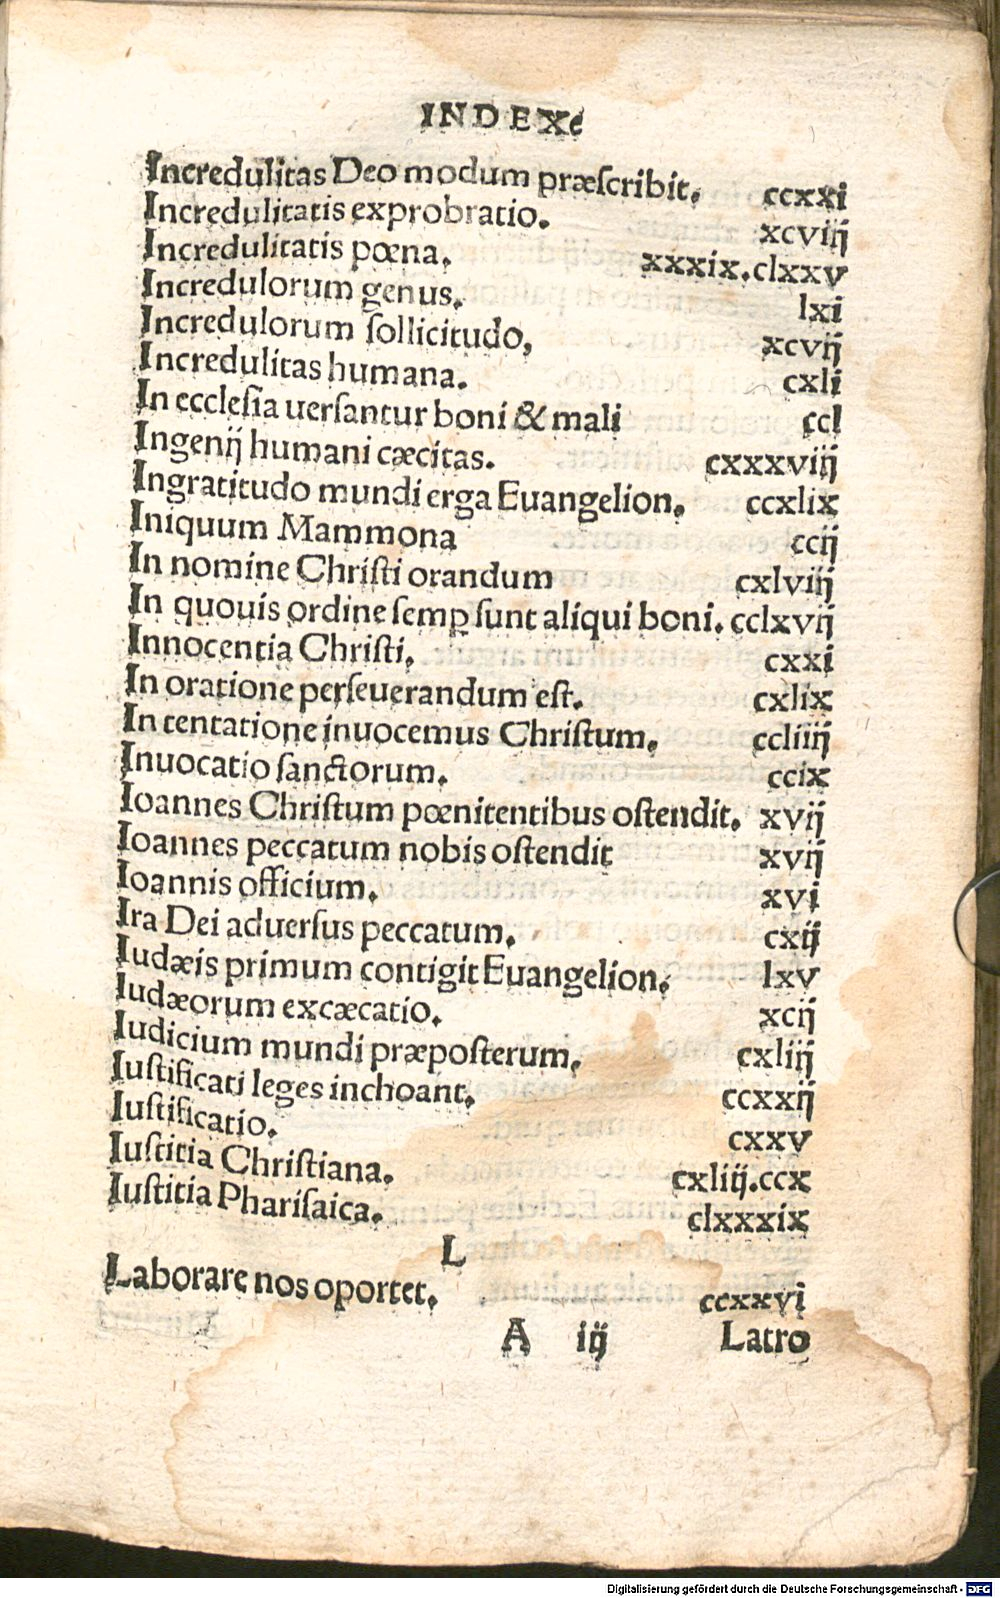 INDEX
Incredulitas Deo modum præſcribit. ccxxi
Incredulitatis exprobratio. xcviij
Incredulitatis pœna. xxxix.clxxv
Incredulorum genus. lxi
Incredulorum ſollicitudo, xcvij
Incredulitas humana. cxli
In eccleſia uerſantur boni & mali ccl
Ingenij humani cæcitas. cxxxviij
Ingratitudo mundi erga Euangelion. ccxlix
Iniquum Mammona ccij
In nomine Chriſti orandum cxlviij
In quouis ordine ſemꝑ ſunt aliqui boni. cclxvij
Innocentia Chriſti. cxxi
In oratione perſeuerandum eſt. cxlix
In tentatione inuocemus Chriſtum. ccliiij
Inuocatio ſanctorum. ccix
Ioannes Chriſtum pœnitentibus oſtendit. xvij
Ioannes peccatum nobis oſtendit xvij
Ioannis officium. xvi
Ira Dei aduerſus peccatum. cxij
Iudæis primum contigit Euangelion. lxv
Iudæorum excæcatio. xcij
Iudicium mundi præpoſterum. cxliij
Iuſtificati leges inchoant. ccxxij
Iuſtificatio. cxxv
Iuſtitia Chriſtiana. cxliij.ccx
Iuſtitia Phariſaica. clxxxix
L
Laborare nos oportet. ccxxvi
A iij Latro
Digitalisierung gefördert durch die Deutsche Forschungsgemeinschaft - DFG